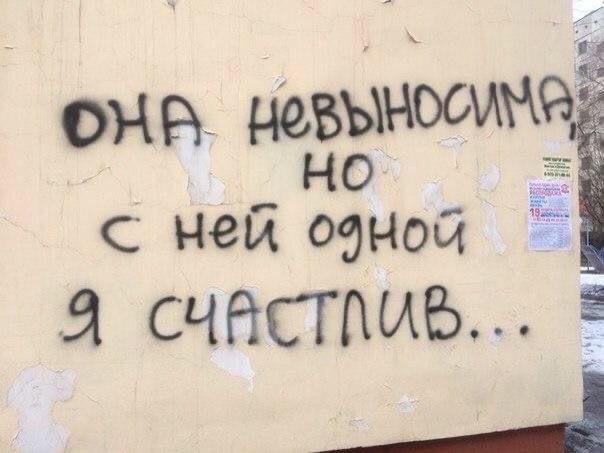 ОНА НЕВЫНОСИМА,
НО
С НЕЙ ОДНОЙ
Я СЧАСТЛИВ...
РАСПРОДАЖА